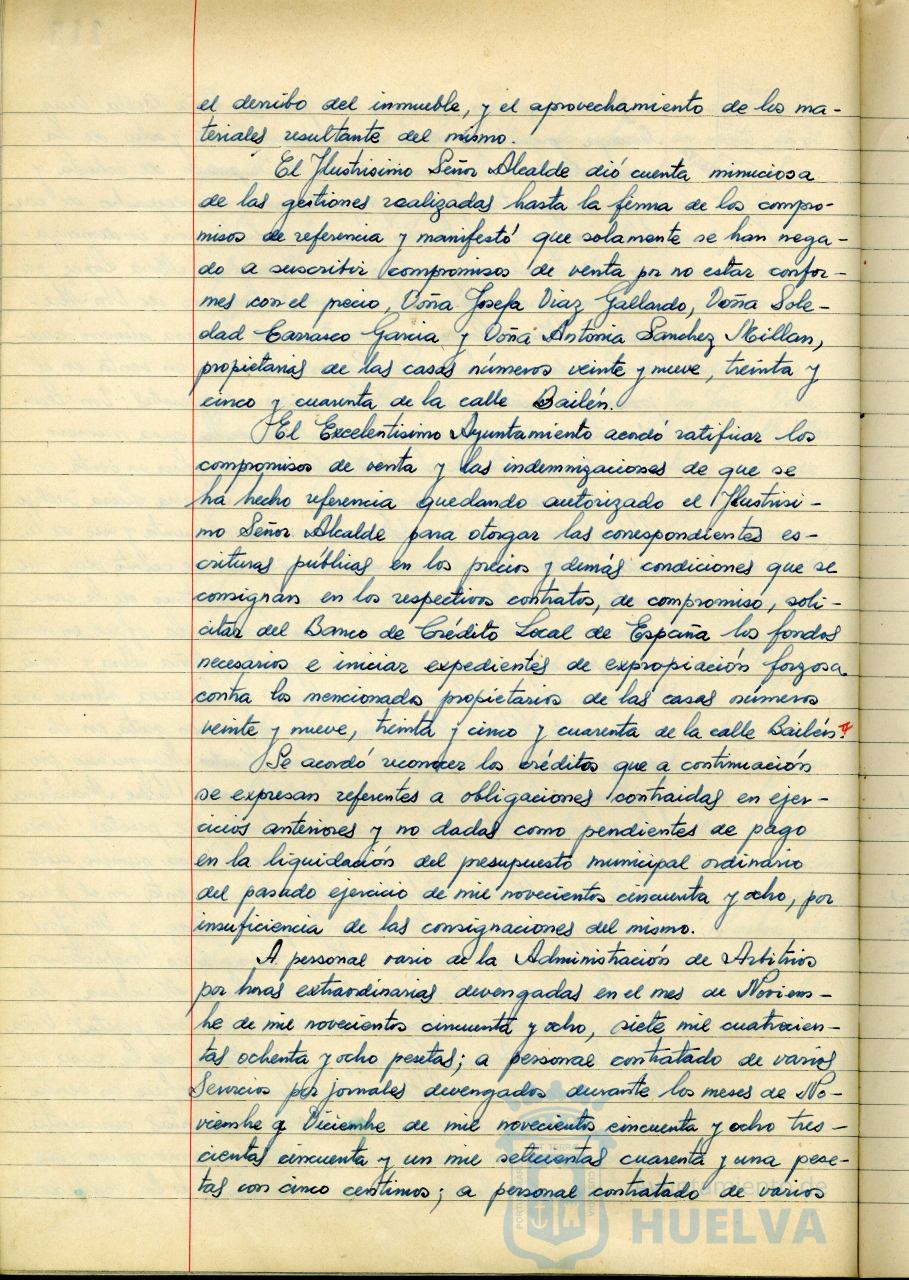 el derribo del inmueble, y el aprovechamiento de los ma-
teriales resultante del mismo.
El Ilustrisimo Señor Alcalde dió cuenta minuciosa
de las gestiones realizadas hasta la firma de los compro-
misos de referencia y manifestó que solamente se han nega-
do a suscribir compromisos de venta por no estar confor-
mes con el precio, Doña Josefa Diaz Gallardo, Doña Sole-
dad Carrasco Garcia y Doña Antonia Sanchez Millan,
propietarias de las casas números veinte y nueve, treinta y
cinco y cuarenta de la calle Bailén.
El Excelentisimo Ayuntamiento acordó ratificar los
compromisos de venta y las indemnizaciones de que se
ha hecho referencia quedando autorizado el Ilustrisi-
mo Señor Alcalde para otorgar las correspondientes es-
crituras públicas en los precios y demás condiciones que se
consignan en los respectivos contratos, de compromiso, soli-
citar del Banco de Crédito Local de España los fondos
necesarios e iniciar expedientes de expropiación forzosa
contra los mencionados propietarios de las casas números
veinte y nueve, treinta y cinco y cuarenta de la calle Bailén.
Se acordó reconocer los créditos que a continuación
se expresan referentes a obligaciones contraidas en ejer-
cicios anteriores y no dadas como pendientes de pago
en la liquidación del presupuesto municipal ordinario
del pasado ejercicio de mil novecientos cincuenta y ocho, por
insuficiencia de las consignaciones del mismo.
A personal vario de la Administración de Arbitrios
por horas extraordinarias devengadas en el mes de Noviem-
bre de mil novecientos cincuenta y ocho, siete mil cuatrocien-
tas ochenta y ocho pesetas; a personal contratado de varios
Servicios por jornales devengados durante los meses de No-
viembre y Diciembre de mil novecientos cincuenta y ocho tres-
cientas cincuenta y un mil setecientas cuarenta y una pese-
tas con cinco centimos; a personal contratado de varios
Ayuntamiento de
HUELVA